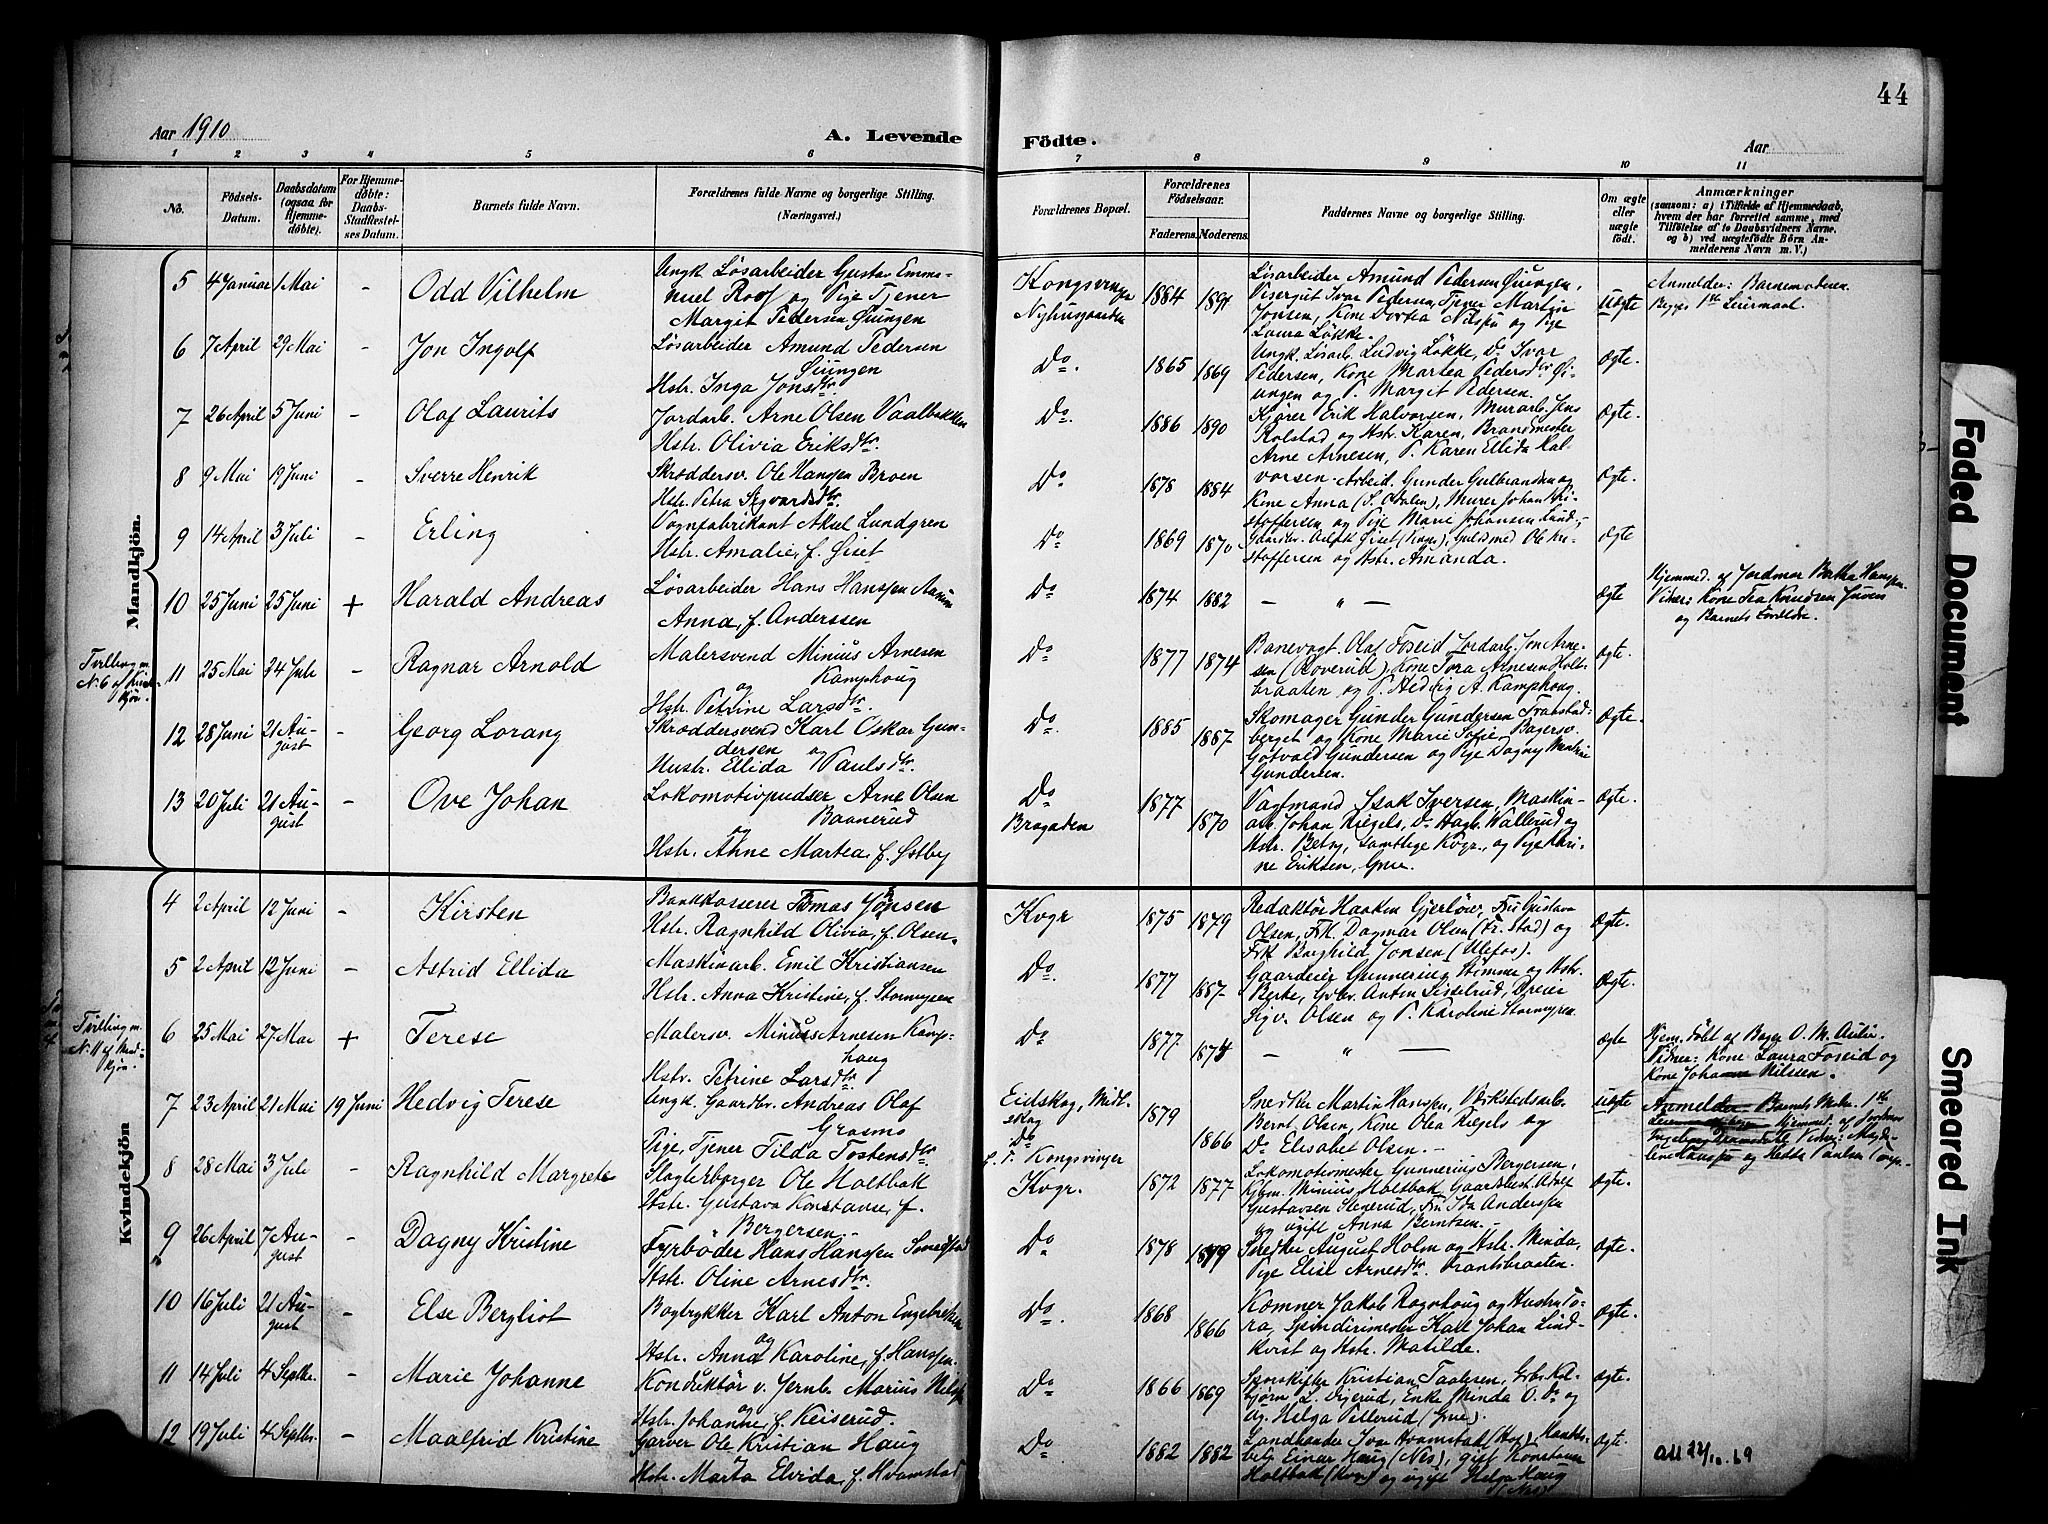 44
Aar 1910
A. Levende Födte.
Aar
1 2 3 4 5 6 7 8 9 10 11
No.
Födsels-Datum.
Daabsdatum (ogsaa for Hjemmedøbte).
For Hjemmedøbte: Daabs-Stadfæstelses Datum.
Barnets fulde Navn.
Forældrenes fulde Navne og borgerlige Stilling. (Næringsvei.)
Forældrenes Bopæl.
Forældrenes Födselsaar.
Faderens. Moderens.
Faddernes Navne og borgerlige Stilling.
Om ægte eller uægte födt.
Anmærkninger
(saasom: a) i Tilfælde af Hjemmedaab, hvem der har forrettet samme, med Tilföielse af to Daabsvidners Navne. og b) ved uægtefödte Börn Anmelderens Navn m. V.)
Mandkjön.
5 4 Januar 1 Mai - Odd Vilhelm
Ungk. Løsarbeider Gustav Emma-
nuel Roos og Pige Tjener
Margit Pedersen Øiungen
Kongsvinger
1884 1891
Løsarbeider Amund Pedersen Øiungen,
Visergut Ivar Pedersen, Tjener Martin
Jonsen, Kone Dortea Nilsen og Pige
Laura Løkke.
Uægte
Anmelder: Barnemoderen.
Begges 1ste Leiermaal.
6 7 April 29 Mai - Jon Ingolf
Løsarbeider Amund Pedersen
Øiungen
Hstr. Inga Jonsdtr
Do.
1865 1869
Ungk. Løsarb. Ludvig Løkke, Do Ivar
Pedersen, Kone Martea Pedersdtr Øi-
ungen og P. Margit Pedersen.
Ægte.
7 26 April 5 Juni - Olaf Laurits
Jordarb. Arne Olsen Vaalbækken
Hstr. Olivia Eriksdtr.
Do.
1886 1890
Kjører Erik Halvorsen, Murarb. Jens
Rolstad og Hstr. Karen, Brandmester
Arne Arnesen, P. Karen Ellida Hal-
vorsen.
Ægte.
8 9 Mai 19 Juni - Sverre Henrik
Skræddersv. Ole Hansen Broen
Hstr. Petra Sigvardsdtr.
Do
1878 1884
Arbeid. Gunder Gulbrandsen og
Kone Anna (S. Odalen), Murer Johan Kri-
stoffersen og Pige Marie Johansen Lund,
Ægte.
9 14 April 3 Juli - Erling
Vognfabrikant Aksel Lundgren
Hstr. Amalie, f. Øiset
Do
1869 1870
Gaardbr. Adolf Øiset (Kvgr), Guldsmed Ole Kri-
stoffersen og Hstr. Amanda.
Ægte
10 25 Juni 25 Juni + Harald Andreas
Løsarbeider Hans Hanssen
Anna, f. Anderssen
Do
1874 1882
— " —
Ægte
Hjemmed. af Jordmor Bertha Hansen.
Vidner: Kone Fra Knudsen
og Barnets Forældre.
Tvilling m. N. 6 af Kvindekjön.
11 25 Mai 24 Juli - Ragnar Arnold
Malersvend Minius Arnesen
Kamphoug
og
Hstr. Petrine Larsdtr.
Do
1877 1874
Banevogt. Olaf Foseid, Jordarb. Jon Arne-
sen (Roverud), Kone Tora Arnesen Holt-
braaten og P. Hedvig A. Kamphoug.
Ægte.
12 28 Juni 21 August - Georg Lorang
Skræddersvend Karl Oskar Gun-
dersen og
Hustr. Ellida Paulsdtr.
Do.
1885 1887
Skomager Gunder Gundersen Transtad-
berget og Kone Marie Sofie, Bagersv.
Gotvald Gundersen og Pige Dagny Mathie
Gundersen.
Ægte.
13 20 Juli 21 August - Ove Johan
Lokomotivpudser Arne Olsen
Baanerud
Hstr. Anne Martea, f. Østby
Do
Brogaden
1877 1870
Vagtmand Isak Iversen, Maskin-
arb. Johan Riegels, Do Hagb. Wallerud og
Hstr. Betsy, samtlige Kvgr., og Pige Kari-
ne Eriksen, Grue.
Ægte.
Kvindekjön
4 2 April 12 Juni - Kirsten
Bankkasserer Tomas Jonsen
Hstr. Ragnhild Olivia, f. Olsen.
Kvgr
1875 1879
Redaktør Haaken Gjerløw, Fru Gustava
Olsen, Frk. Dagmar Olsen (Fr. stad) og
Frk Borghild Jonsen (Ulefos).
Ægte.
5 2 April 12 Juni - Astrid Ellida
Maskinarb. Emil Kristiansen
Hstr. Anna Kristine, f. Stormyren
Do.
1877 1887
Gaardeier Gunnering Stømner og Hstr.
Berte, Gbr. Anton Sisselrud, Dreier
Sigv. Olsen og P. Karoline Stormyren.
Ægte.
Tvilling m. N. 11 af Mandkjön.
6 25 Mai 27 Mai + Terese
Malersv. Minius Arnesen Kamp-
houg
Hstr. Petrine Larsdtr.
Do
1877 1874
— " —
Ægte
Hjem. Døbt af Bager O. M. Aulie.
Vidner: Kone Laura Foseid og
Kone Johanne Nilssen.
7 23 April 21 Mai 19 Juni Hedvig Terese
Ungk. Gaardbr. Andreas Olaf
Grasmo
Pige, Tjener Tilda Tostensdtr.
Eidskog, Midt-
skog
Do
f. T. Kongsvinger
1879 1866
Snedker Martin Hanssen, Værkstedsarb.
Bernt Olsen, Kone Olea Riegels og
Do Elisabet Olsen.
Uægte
Anmelder: Barnets Moder. 1ste
8 28 Mai 3 Juli - Ragnhild Margrete
Slagterborger Ole Holtbak
Hstr. Gustava Konstanse, f.
Bergersen.
Kvgr.
1872 1877
Lokomotivmester Gunnerius Bergersen,
Kbm. Minius Holtbak, Gaardbest. Adolf
Gustavsen Stenerud, Fru Ida Anderssen
og ugift Anna Berntsen.
Ægte.
9 26 April 7 August - Dagny Kristine
Fyrbøder Hans Hanssen
Hstr. Oline Arnesdtr.
Do
1878 1879
Snedker August Holm og Hstr. Minda,
Pige Elise Arnesdtr. Brantsbraaten.
Ægte.
10 16 Juli 21 August - Else Bergliot
Bogtrykker Karl Anton Engebretsen
og
Hstr. Anna Karoline, f. Hanssen.
Do.
1868 1866
Kæmner Jakob Rognhoug og Hustru To-
ra, Spinderimester Karl Johan Lind-
kvist og Hstr. Matilde.
Ægte.
11 14 Juli 4 Septbr. - Marie Johanne
Konduktør v. Jernb. Marius Nilsen
og
Hstr. Johanne, f. Keiserud.
Do
1866 1869
Sporskifter Kristian Taalesen, Gbr. Kol-
bjørn L. Digerud, Enke Minda O. Do og
ug. Helga Pellerud (Grue).
Ægte.
12 19 Juli 4 Septbr. - Maalfrid Kristine
Garver Ole Kristian Haug
Hstr. Marta Elvida, f. Hvamstad
Do
1882 1882
Landhandler Ivar Hvamstad
Einar Haug (Nes), gift Konstanse
Holtbak (Kvgr) og ugift Helga Haug
(Nes)
Ægte.
Faded Document
Smeared Ink